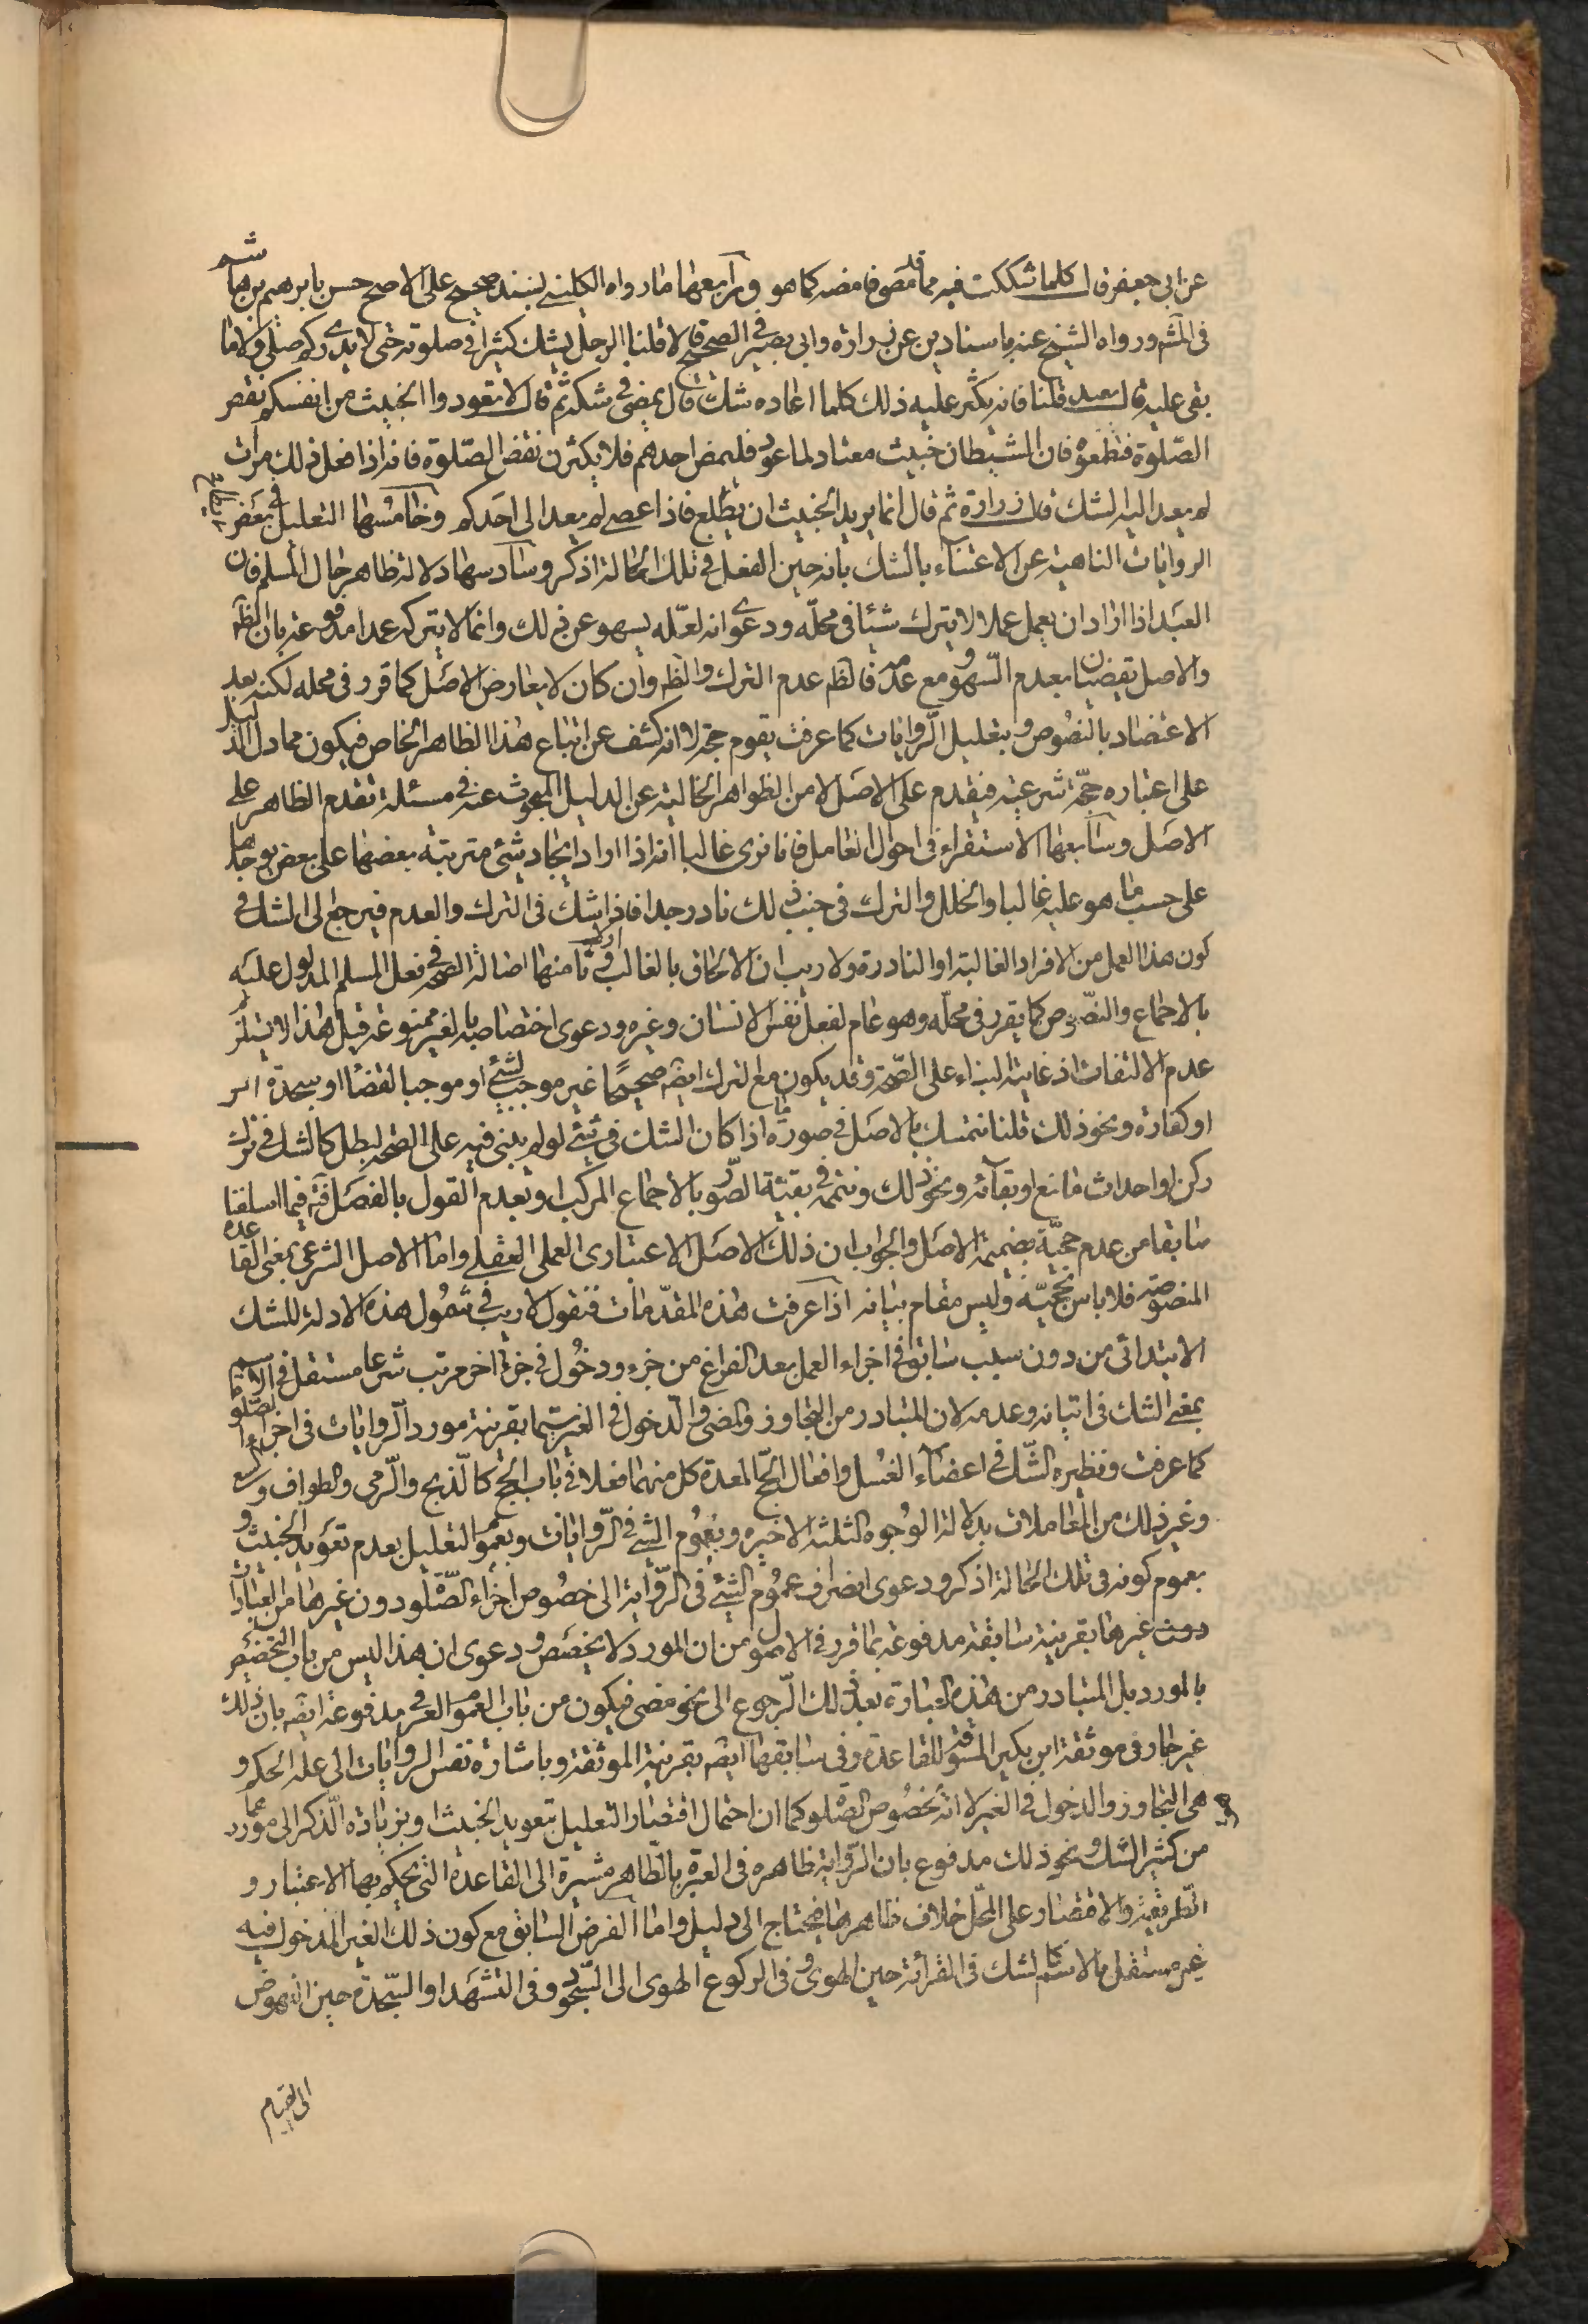 عن ابي جعفر قال كلما شككت فيه مما قد مضى فامضه كما هو ورابعها ما رواه الكليني بسند صحيح على الاصح حسن بابرهيم بن هاشم
في المشهور ورواه الشيخ عنه باسنادين عن زرارة وابي بصير في الصحيح قالا قلنا الرجل يشك كثيرا في صلوته حتى لا يدرى كم صلى ولا ما
بقى عليه قال يعيد قلنا فانه يكثر عليه ذلك كلما اعاده شك قال يمضى في شكه ثم قال لا تعودوا الخبيث من انفسكم نقض
الصلوة فتطمعوه فان الشيطان خبيث معتاد لما عود فليمض احدهم فلا يكثرن نقض الصلوة فانه اذا فعل ذلك مرات
لم يعد اليه الشك قال زرارة ثم قال انما يريد الخبيث ان يطاع فاذا عصى لم يعد الى احدكم وخامسها التعليل في بعض
الروايات الناهية عن الاعتناء بالشك بانه حين الفعل في تلك الحالة اذكر وسادسها دلالة ظاهر حال المسلم فان
العبد اذا اراد ان يعمل عملا لا يترك شيئا في محله ودعوى انه لعله يسهو عن ذلك وانما لا يتركه عمدا مدفوعة بان الظ
والاصل يقضيان بعدم السهو ومع عدمه فالظ عدم الترك والظ وان كان لا يعارض الاصل كما قرر في محله لكنه بعد
الاعتضاد بالنصوص وبتعليل الروايات كما عرفت يقوم حجة لانه كشف عن اتباع هذا الظاهر الخاص فيكون مما دل الدليل
على اعتباره حجة شرعية فيقدم على الاصل لا من الظواهر الخالية عن الدليل المبحوث عنه في مسئلة تقدم الظاهر على
الاصل وسابعها الاستقراء في احوال العامل فانا نرى غالبا انه اذا اراد ايجاد شئ مترتبة بعضها على بعض يوجدها
على حسب ما هو عليه غالبا والخلل والترك في جنب ذلك نادر جدا فاذا شك في الترك والعدم فيرجع الى الشك في
كون هذا العمل من الافراد الغالبة او النادرة ولا ريب ان الالحاق بالغالب اولى وثامنها اصالة الصحة في فعل المسلم المدلول عليه
بالاجماع والنصوص كما يقرر في محله وهو عام لفعل نفس الانسان وغيره ودعوى اختصاصه بالغير ممنوعة قيل هذا لا يستلزم
عدم الالتفات اذ غايته البناء على الصحة وقد يكون مع الترك ايضه صحيحا غير موجب لشئ او موجبا لقضاء او سجدة
او كفارة ونحو ذلك قلنا نتمسك بالاصل في صورة ما اذا كان الشك في شئ لو لم يبنى فيه على الصحة لبطل كالشك في ترك
ركن او احداث مانع او بقائه ونحو ذلك ونتممه في بقية الصور بالاجماع المركب او بعدم القول بالفصل فيما اسلفنا
سابقا من عدم حجية ضميمة الاصل والجواب ان ذلك الاصل الاعتبارى العملي العقلي واما الاصل الشرعي بمعنى القاعدة
المنصوصة فلا باس بحجيته وليس مقام بيانه اذا عرفت هذه المقدمات فنقول لا ريب في شمول هذه الادلة للشك
الابتدائى من دون سبب سابق في اجزاء العمل بعد الفراغ من جزء ودخول في جزء اخر مرتب شرعا مستقل في الاسم
بمعنى الشك في اتيانه وعدمه لان المتبادر من التجاوز والمضى والدخول في الغير سيما بقرينة مورد الروايات في اجزاء الصلوة
كما عرفت ونظيره الشك في اعضاء الغسل وافعال الحج المعدة كل منهما فعلا في باب الحج كالذبح والرمى والطواف والسعى
وغير ذلك من المعاملات بدلالة الوجوه الثلثة الاخيره وبعموم الشئ في الروايات وبعموم التعليل بعدم تعويد الخبيث و
بعموم كونه في تلك الحالة اذكر ودعوى انصراف عموم الشئ في الرواية الى خصوص اجزاء الصلوة دون غيرها من العبادات
دون غيرها بقرينة سابقة مدفوعة بما قرر في الاصول من ان المورد لا يخصص ودعوى ان هذا ليس من باب التخصيص
بالمورد بل المتبادر من هذه العبارة بعد ذلك الرجوع الى نحو مضى فيكون من باب العموم العرفي مدفوعة ايضه بان ذلك
غير جار في موثقة ابن بكير المسوقة للقاعدة وفي سابقها ايضه بقرينة الموثقة وباشارة نفس الروايات الى علة الحكم و
هى التجاوز والدخول في الغير لا انه بخصوص الصلوة كما ان احتمال اقتصار التعليل بتعويد الخبيث او بزيادة الذكر الى موردهما
من كثير الشك ونحو ذلك مدفوع بان الرواية ظاهره في العبرة بالظاهر مشيرة الى القاعدة التى يحكم بها الاعتبار و
الطريقية والاقتصار على المحل خلاف ظاهرها فيحتاج الى دليل واما الفرض السابق مع كون ذلك الغير المدخول فيه
غير مستقل بالاسم كالشك في القرائة حين الهوى وفي الركوع الهوى الى السجود وفي التشهد او السجدة حين النهوض
الى القيام